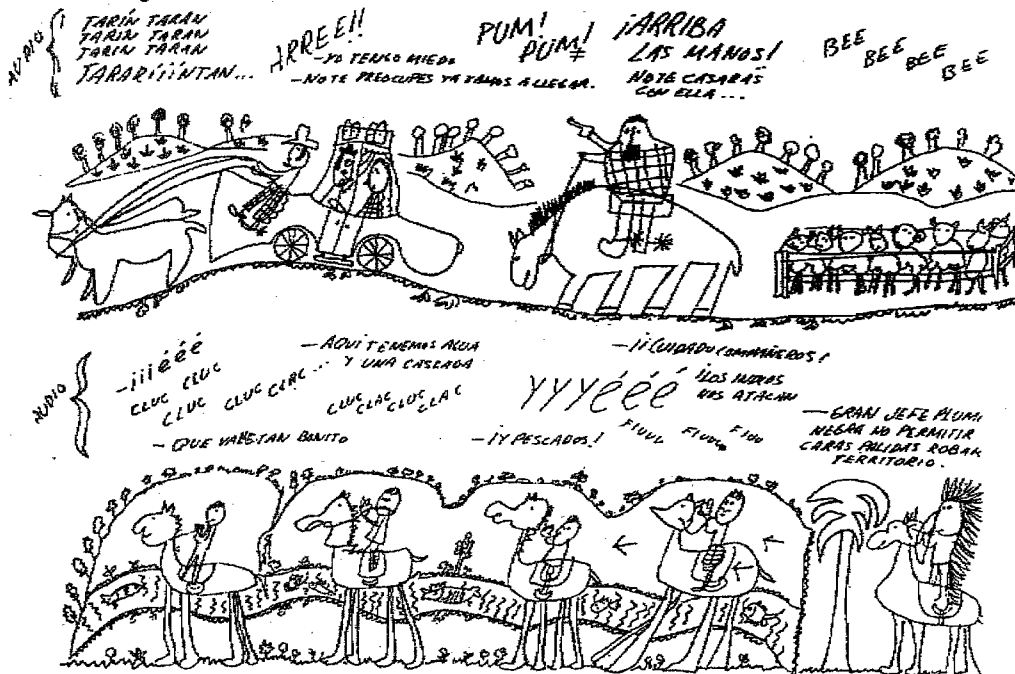 AUDIO
TARÍN TARÁN
TARIN TARAN
TARIN TARAN
TARARÍÍÍNTAN...
ARREE!!
—YO TENGO MIEDO
—NO TE PREOCUPES YA VAMOS A LLEGAR.
PUM!
PUM!
¡ARRIBA
LAS MANOS!
NO TE CASARAS
CON ELLA...
BEE
BEE
BEE
BEE
AUDIO
—¡¡¡ééé
CLUC CLUC
CLUC CLUC CLAC...
—QUE VALLE TAN BONITO
—AQUI TENEMOS AGUA
Y UNA CASCADA
CLUC CLAC CLUC CLAC
—¡Y PESCADOS!
—¡¡CUIDADO COMPAÑEROS!
YYYééé
¡LOS INDIOS
NOS ATACAN
—GRAN JEFE PLUMA
NEGRA NO PERMITIR
CARAS PALIDAS ROBAR
TERRITORIO.